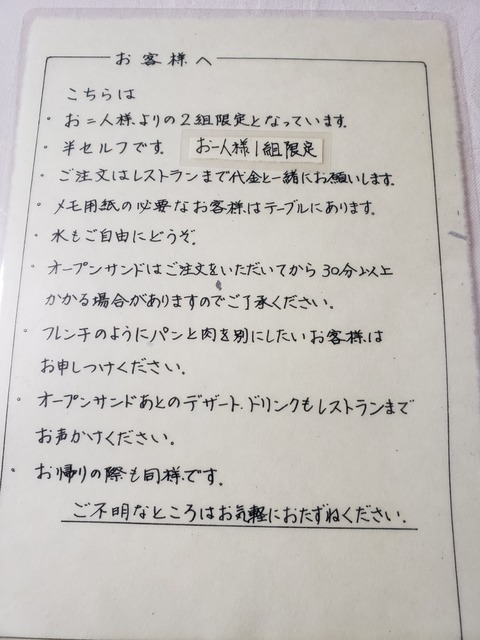 お客様へ
こちらは
・お二人様よりの2組限定となっています。
・半セルフです。 お一人様1組限定
・ご注文はレストランまで代金と一緒にお願いします。
・メモ用紙の必要なお客様はテーブルにあります。
・水もご自由にどうぞ。
・オープンサンドはご注文をいただいてから30分以上
かかる場合がありますのでご了承ください。
・フレンチのようにパンと肉を別にしたいお客様は
お申しつけください。
・オープンサンドあとのデザート、ドリンクもレストランまで
お声かけください。
・お帰りの際も同様です。
ご不明なところはお気軽におたずねください。